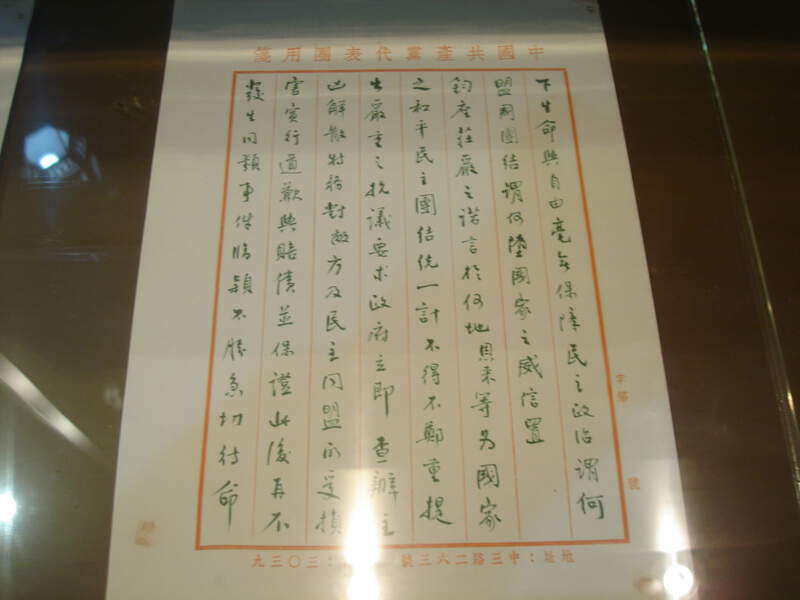 中國共產黨代表團用箋
下生命與自由毫無保障民主政治謂何
盟國團結謂何墮國家之威信置
鈞座莊嚴之諾言於何地恩來等為國家
之和平民主團結統一計不得不鄭重提
出嚴重之抗議要求政府立即查辦主
凶解散特務對敝方及民主同盟所受損
害實行道歉與賠償並保證此後再不
發生同類事件臨穎不勝急切待命
字第 號
地址：中三路二六三號 ：三〇三九